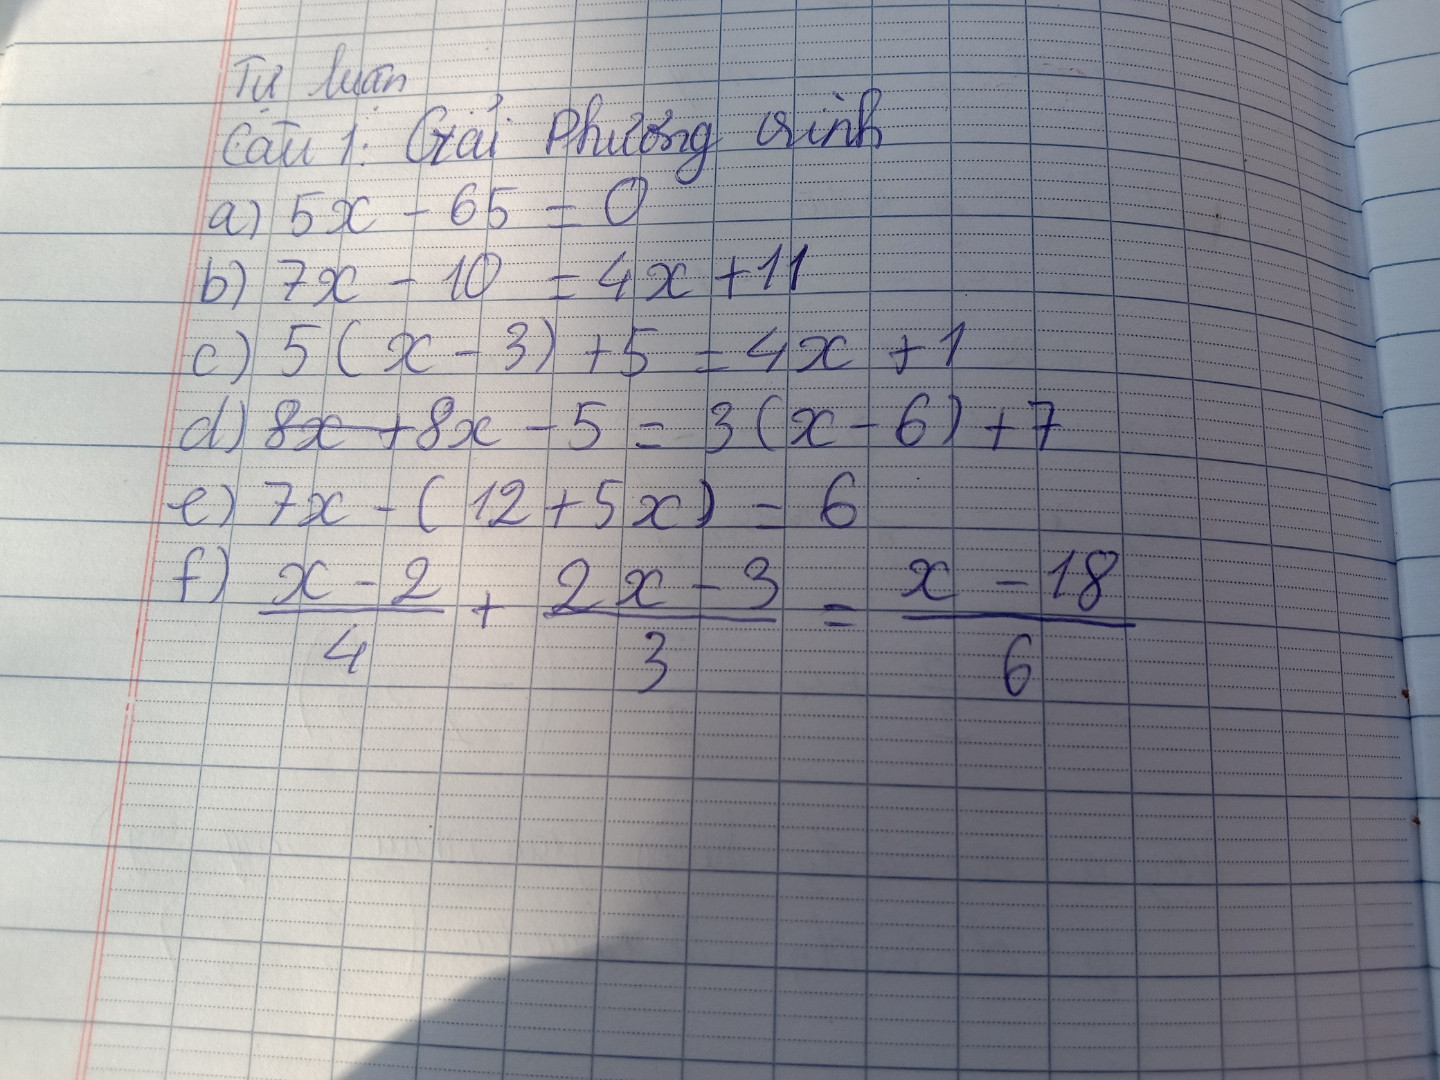 Tự luận
Câu 1: Giải Phương trình
a) 5x - 65 = 0
b) 7x - 10 = 4x + 11
c) 5(x - 3) + 5 = 4x + 1
d) 8x + 8x - 5 = 3(x - 6) + 7
e) 7x - (12 + 5x) = 6
f) x - 2 / 4 + 2x - 3 / 3 = x - 18 / 6